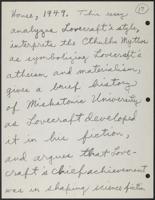 17
House, 1949. This essay
analyzes Lovecraft's style,
interprets the Cthulhu Mythos
as symbolizing Lovecraft's
atheism, and materialism,
gives a brief history
of Miskatonic University
as Lovecraft developed
it in his fiction,
and argues that Love-
craft's chief achievement
was in shaping science fiction